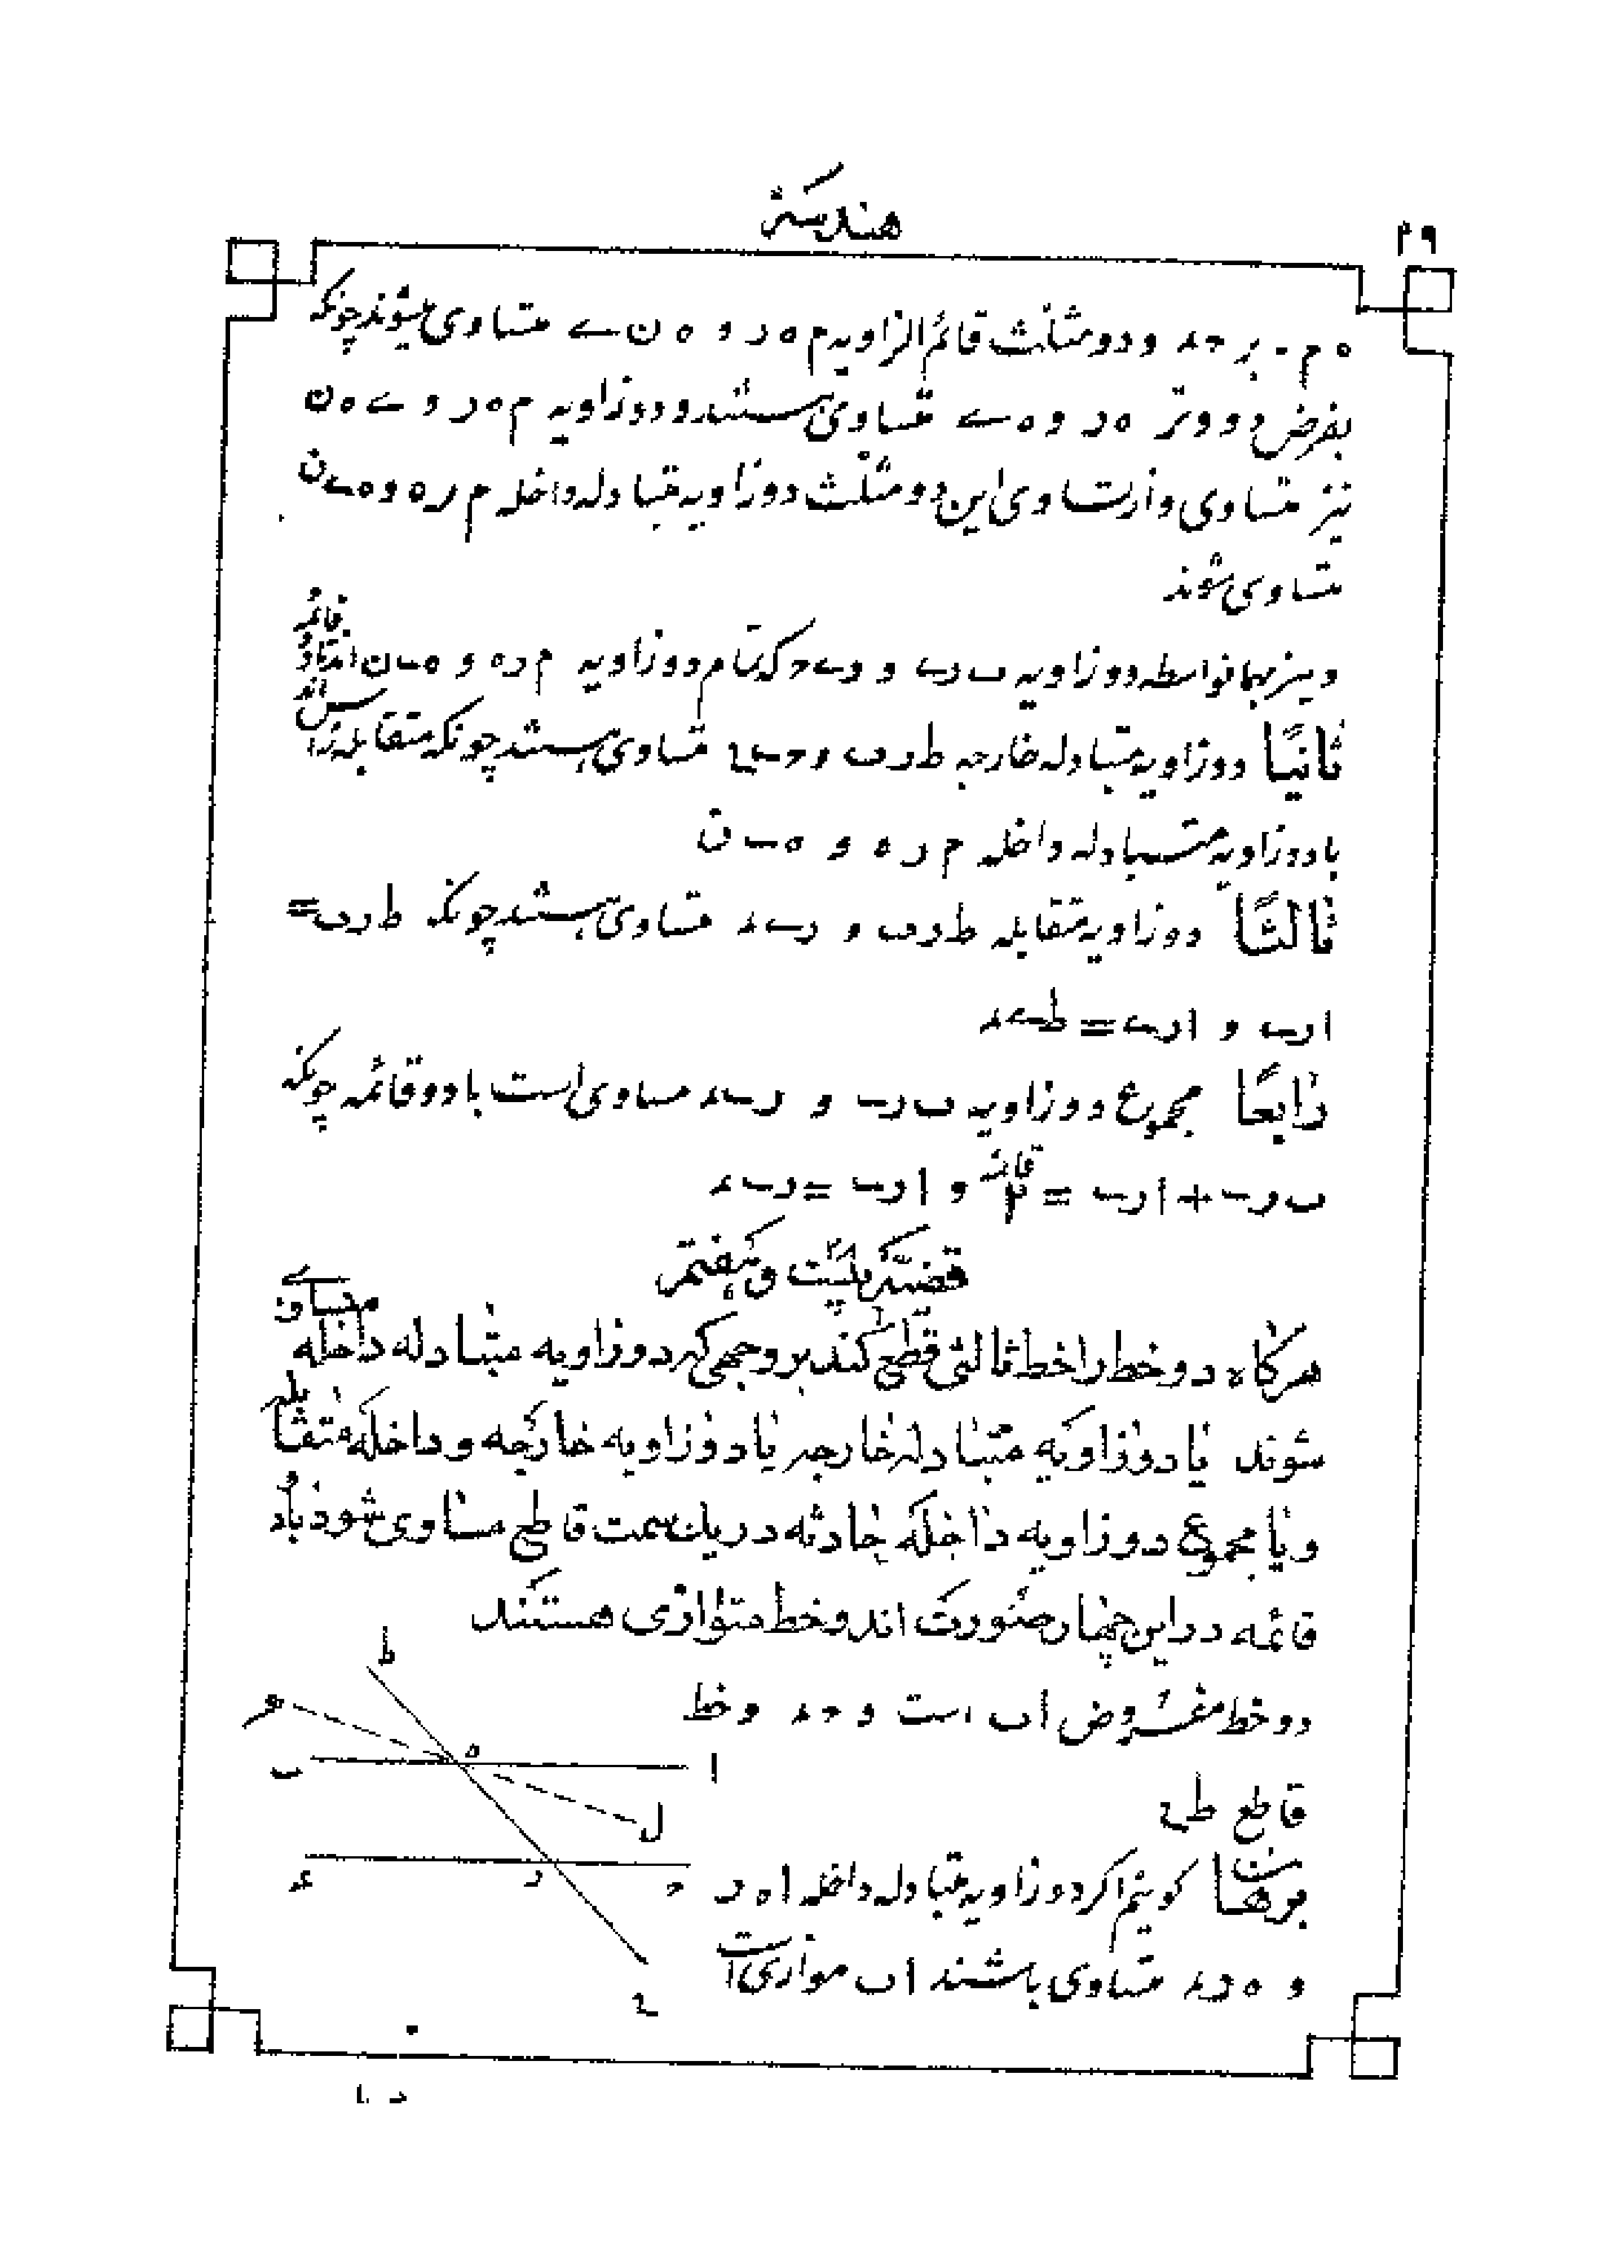 هندسه
۲۹
ه م - بر حد و دو مثلث قائم الزاویه م ه ر و ه ن ے متساوی میشوند چونکه
بفرض دو وتر ه ر و ه ے متساوی هستند و دو زاویه م ه ر و ے ه ن
نیز متساوی و از تساوی این دو مثلث دو زاویه متبادله داخله م ر ه و ه ے ن
متساوی شوند
و نیز بهمانواسطه دو زاویه ب ر ے و ر ے ح که تمام دو زاویه م ر ه و ه ے ن اند تا دو قائمه
ثانیًا دو زاویه متبادله خارجه ط ر ب و ح ے متساوی هستند چونکه متقابله براس اند
با دو زاویه متبادله داخله م ر ه و ه ے ن
ثالثًا دو زاویه متقابله ط ر ب و ر ے د متساوی هستند چونکه ط ر ب =
ا ر ے و ا ر ے = ط ے د
رابعًا مجموع دو زاویه ب ر ے و ر ے د مساوی است با دو قائمه چونکه
ب ر ے + ا ر ے = ۲ قائمه و ا ر ے = ر ے د
قضیه بیست و هفتم
هرکاه دو خط را خط ثالثی قطع کند بر وجهی که دو زاویه متبادله داخله متساوے
شوند یا دو زاویه متبادله خارجه یا دو زاویه خارجه و داخله متقابله
و یا مجموع دو زاویه داخله حادثه در یک سمت قاطع مساوی شود با دو
قائمه در این چهار صورت اندو خط متوازی هستند
دو خط مفروض ا ب است و ح د و خط
قاطع ط ے
برهان کوئیم اکر دو زاویه متبادله داخله ا ه ر
و ه ر د متساوی باشند ا ب موازی است
ط
و
ه
ب
ا
ل
د
ر
ح
ے
با